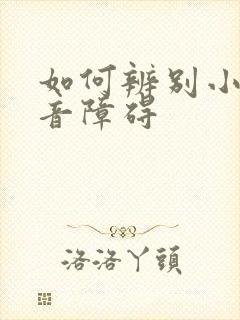 如何辨别小
音障碍
洛洛丫頭